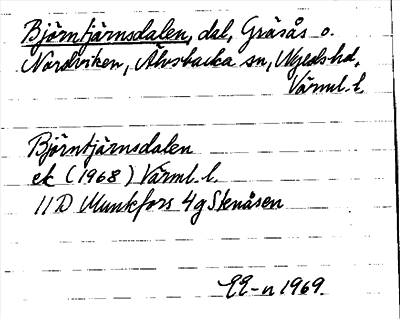 Björntjärnsdalen, dal, Gräsås o.
Nordviken, Älvsbacka sn, Nyeds hd,
Värml. l.
Björntjärnsdalen
ek (1968) Värml. l.
11 D Munkfors 4 g Stenåsen
1969.